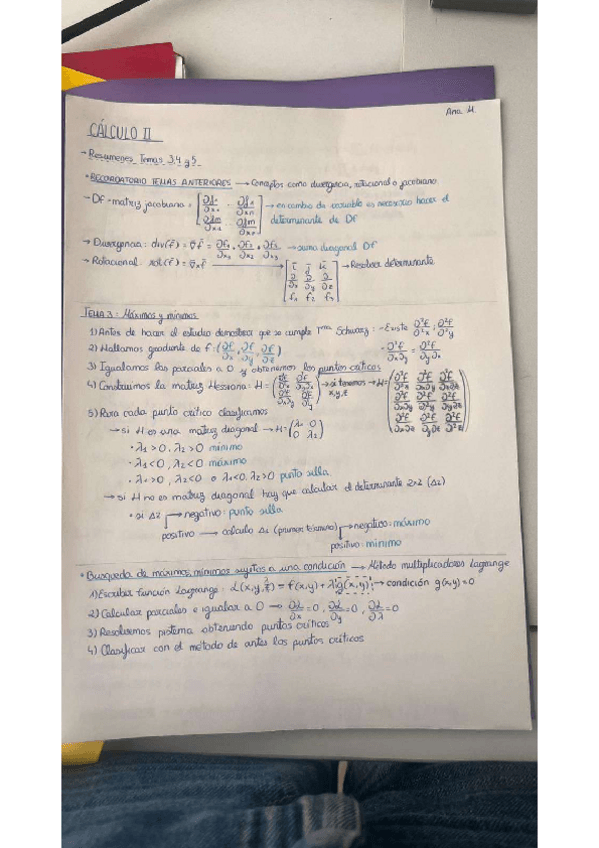 Ana M
CÁLCULO II
→ Resumenes Temas 3,4 y 5
• RECORDATORIO TEMAS ANTERIORES → Conceptos como divergencia, rotacional o jacobiano.
- Df - matriz jacobiana = [∂f₁/∂x₁ ... ∂f₁/∂xn ; ∂fm/∂x₁ ... ∂fm/∂xn] → en cambio de variable es necesario hacer el
determinante de Df
→ Divergencia: div(f̄) = ∇·f̄ = ∂f₁/∂x₁ + ∂f₂/∂x₂ + ∂f₃/∂x₃ → suma diagonal Df
→ Rotacional: rot(f̄) = ∇×f̄ → [i j k ; ∂/∂x ∂/∂y ∂/∂z ; f₁ f₂ f₃] → Resolver determinante
TEMA 3: Máximos y mínimos
1) Antes de hacer el estudio demostrar que se cumpla Tma Schwarz: - Existe ∂²f/∂²x, ∂²f/∂²y
- ∂²f/∂x∂y = ∂²f/∂y∂x
2) Hallamos gradiente de f: (∂f/∂x, ∂f/∂y, ∂f/∂z)
3) Igualamos las parciales a 0 y obtenemos los puntos críticos
4) Construimos la matriz Hessiana: H = (∂²f/∂²x ∂²f/∂y∂x ; ∂²f/∂x∂y ∂²f/∂²y) → si tenemos x,y,z → H = (∂²f/∂²x ∂²f/∂x∂y ∂²f/∂x∂z ; ∂²f/∂x∂y ∂²f/∂²y ∂²f/∂y∂z ; ∂²f/∂x∂z ∂²f/∂y∂z ∂²f/∂²z)
5) Para cada punto crítico clasificamos
→ si H es una matriz diagonal → H = (λ₁ 0 ; 0 λ₂)
• λ₁ > 0, λ₂ > 0 mínimo
• λ₁ < 0, λ₂ < 0 máximo
• λ₁ > 0, λ₂ < 0 o λ₁ < 0, λ₂ > 0 punto silla
→ si H no es matriz diagonal hay que calcular el determinante 2x2 (Δ₂)
• si Δ₂ → negativo: punto silla
positivo → calculo Δ₁ (primer término) → negativo: máximo
positivo: mínimo
• Busqueda de máximos, mínimos sujetos a una condición → Método multiplicadores Lagrange
1) Escribir función Lagrange: L(x,y,z) = f(x,y) + λ g(x,y) → condición g(x,y) = 0
2) Calcular parciales e igualar a 0 → ∂L/∂x = 0, ∂L/∂y = 0, ∂L/∂λ = 0
3) Resolvemos sistema obteniendo puntos críticos
4) Clasificar con el método de antes los puntos críticos